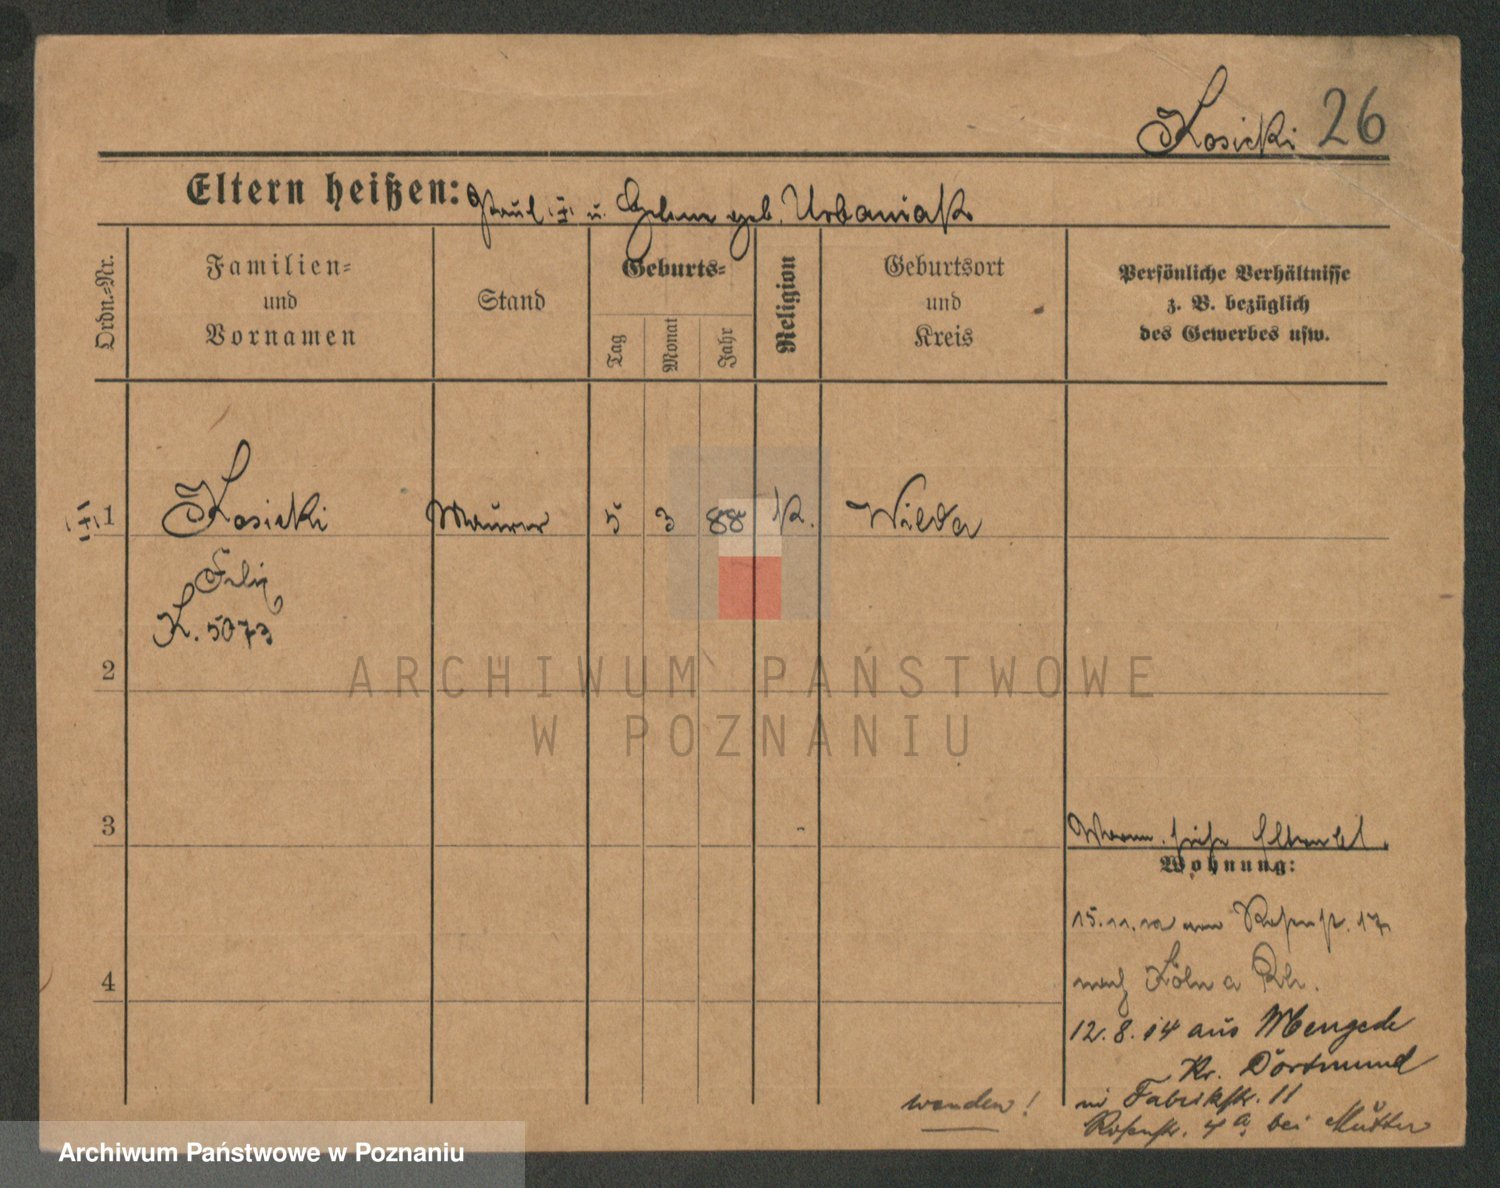 Kosicki 26
Eltern heißen: Paul (†) u. Helene geb. Urbaniak
Ordn.-Nr.
Familien-
und
Vornamen
Stand
Geburts-
Tag
Monat
Jahr
Religion
Geburtsort
und
Kreis
Persönliche Verhältnisse
z. B. bezüglich
des Gewerbes usw.
1 Kosicki Maurer 5 3 88 K. Wilda
Felix
K. 5073
2
ARCHIWUM PAŃSTWOWE
W POZNANIU
3
Wohn. siehe
Wohnung:
15.11. 17
nach Köln a Rh.
4
12.8.14 aus Mengede
Kr. Dortmund
wenden!
in Fabrikstr. 11
Rosenstr. 4a bei Mutter
Archiwum Państwowe w Poznaniu